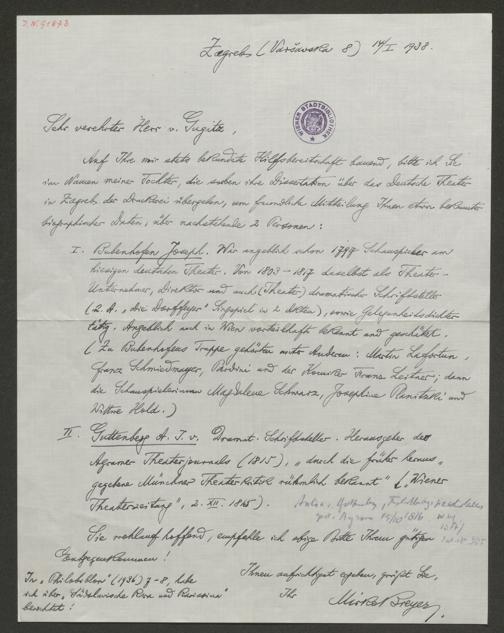 J.N.91873
Zagreb (Varšavska 8) 14/I 1938.
WIENER STADTBIBLIOTHEK
Sehr verehrter Herr v. Gugitz,
Auf Ihre mir stets bekundete Hilfsbereitschaft bauend, bitte ich Sie
im Namen meiner Tochter, die soeben ihre Dissertation über das Deutsche Theater
in Zagreb der Druckerei übergeben, um freundliche Mitteilung Ihnen etwa bekannter
biographischer Daten, über nachstehende 2 Personen:
I. Bubenhofen Joseph. War angeblich schon 1797 Schauspieler am
hiesigen deutschen Theater. Von 1803–1817 daselbst als Theater-
Unternehmer, Direktor und auch (Theater) dramatische Schriftsteller
(z. B. „die Dorffeyer" Singspiel in 2 Akten), sowie Gelegenheitsdichter
tätig. Angeblich auch in Wien vorteilhaft bekannt und geschätzt.
(Zu Bubenhofens Truppe gehörten unter Anderen: Martin Lafortun,
Franz Schmiedmayer, und der Komiker Franz Leitner; dann
die Schauspielerinnen Magdalena Schwarz, Josephine und
Wittwe Held.)
II. Guttenberg A. J. v. Dramat. Schriftsteller. Herausgeber des
Agramer Theaterjournals (1815), „durch die früher heraus-
gegebene Münchner Theater Kritik rühmlich bekannt" („Wiener
Theaterzeitung", 2. XII. 1815).
Sie wohlauf hoffend, empfehle ich obige Bitte Ihrem gütigen
Entgegenkommen!
Ihnen aufrichtigst ergeben, grüßt Sie,
Ihr Mirko Breyer.
In „Philobiblon" (1936) 7–8, habe
ich über „Südslawische Rara und Rarissima"
berichtet!